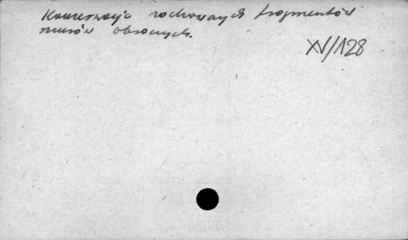 Konserwacja zachowanych fragmentów
murów obronnych.
XV/128